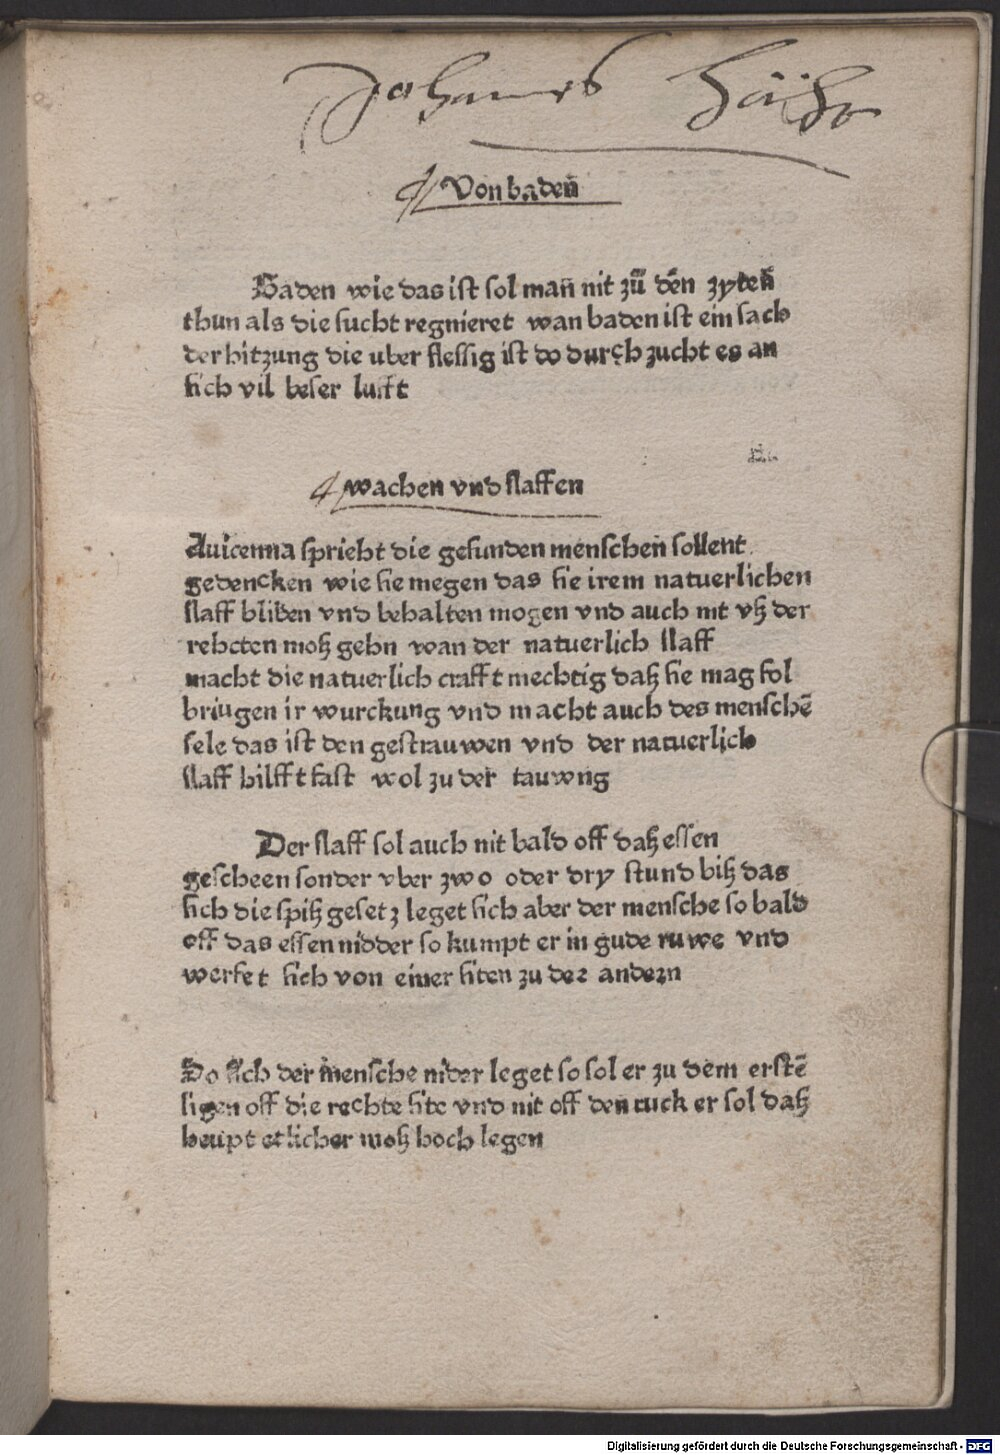 Johannes
Von baden̄
Baden wie das ist sol man̄ nit zů dēn zyten̄
thun als die sucht regnieret wan baden ist ein sach
der hitzung die uber flessig ist do durch zucht es an
sich vil beser lufft
wachen vnd slaffen
Auicenna spricht die gesunden menschen̄ sollent
gedencken wie sie megen das sie irem natuerlichen
slaff bliben vnd behalten mogen vnd auch nit vß der
rehcten moß gehn wan der natuerlich slaff
macht die natuerlich crafft mechtig daß sie mag fol
briugen ir wurckung vnd macht auch des menschē
sele das ist den gestrauwen vnd der natuerlich
slaff hilfft fast wol zu der tauwng
Der slaff sol auch nit bald off daß essen
gescheen sonder vber zwo oder dry stund biß das
sich die spiß gesetz leget sich aber der mensche so bald
off das essen nidder so kumpt er in gude ruwe vnd
werfet sich von einer siten zu der andern
Do sich der mensche nider leget so sol er zu dem erstē
ligen off die rechte site vnd nit off den ruck er sol daß
heupt etlicher moß hoch legen
Digitalisierung gefördert durch die Deutsche Forschungsgemeinschaft - DFG